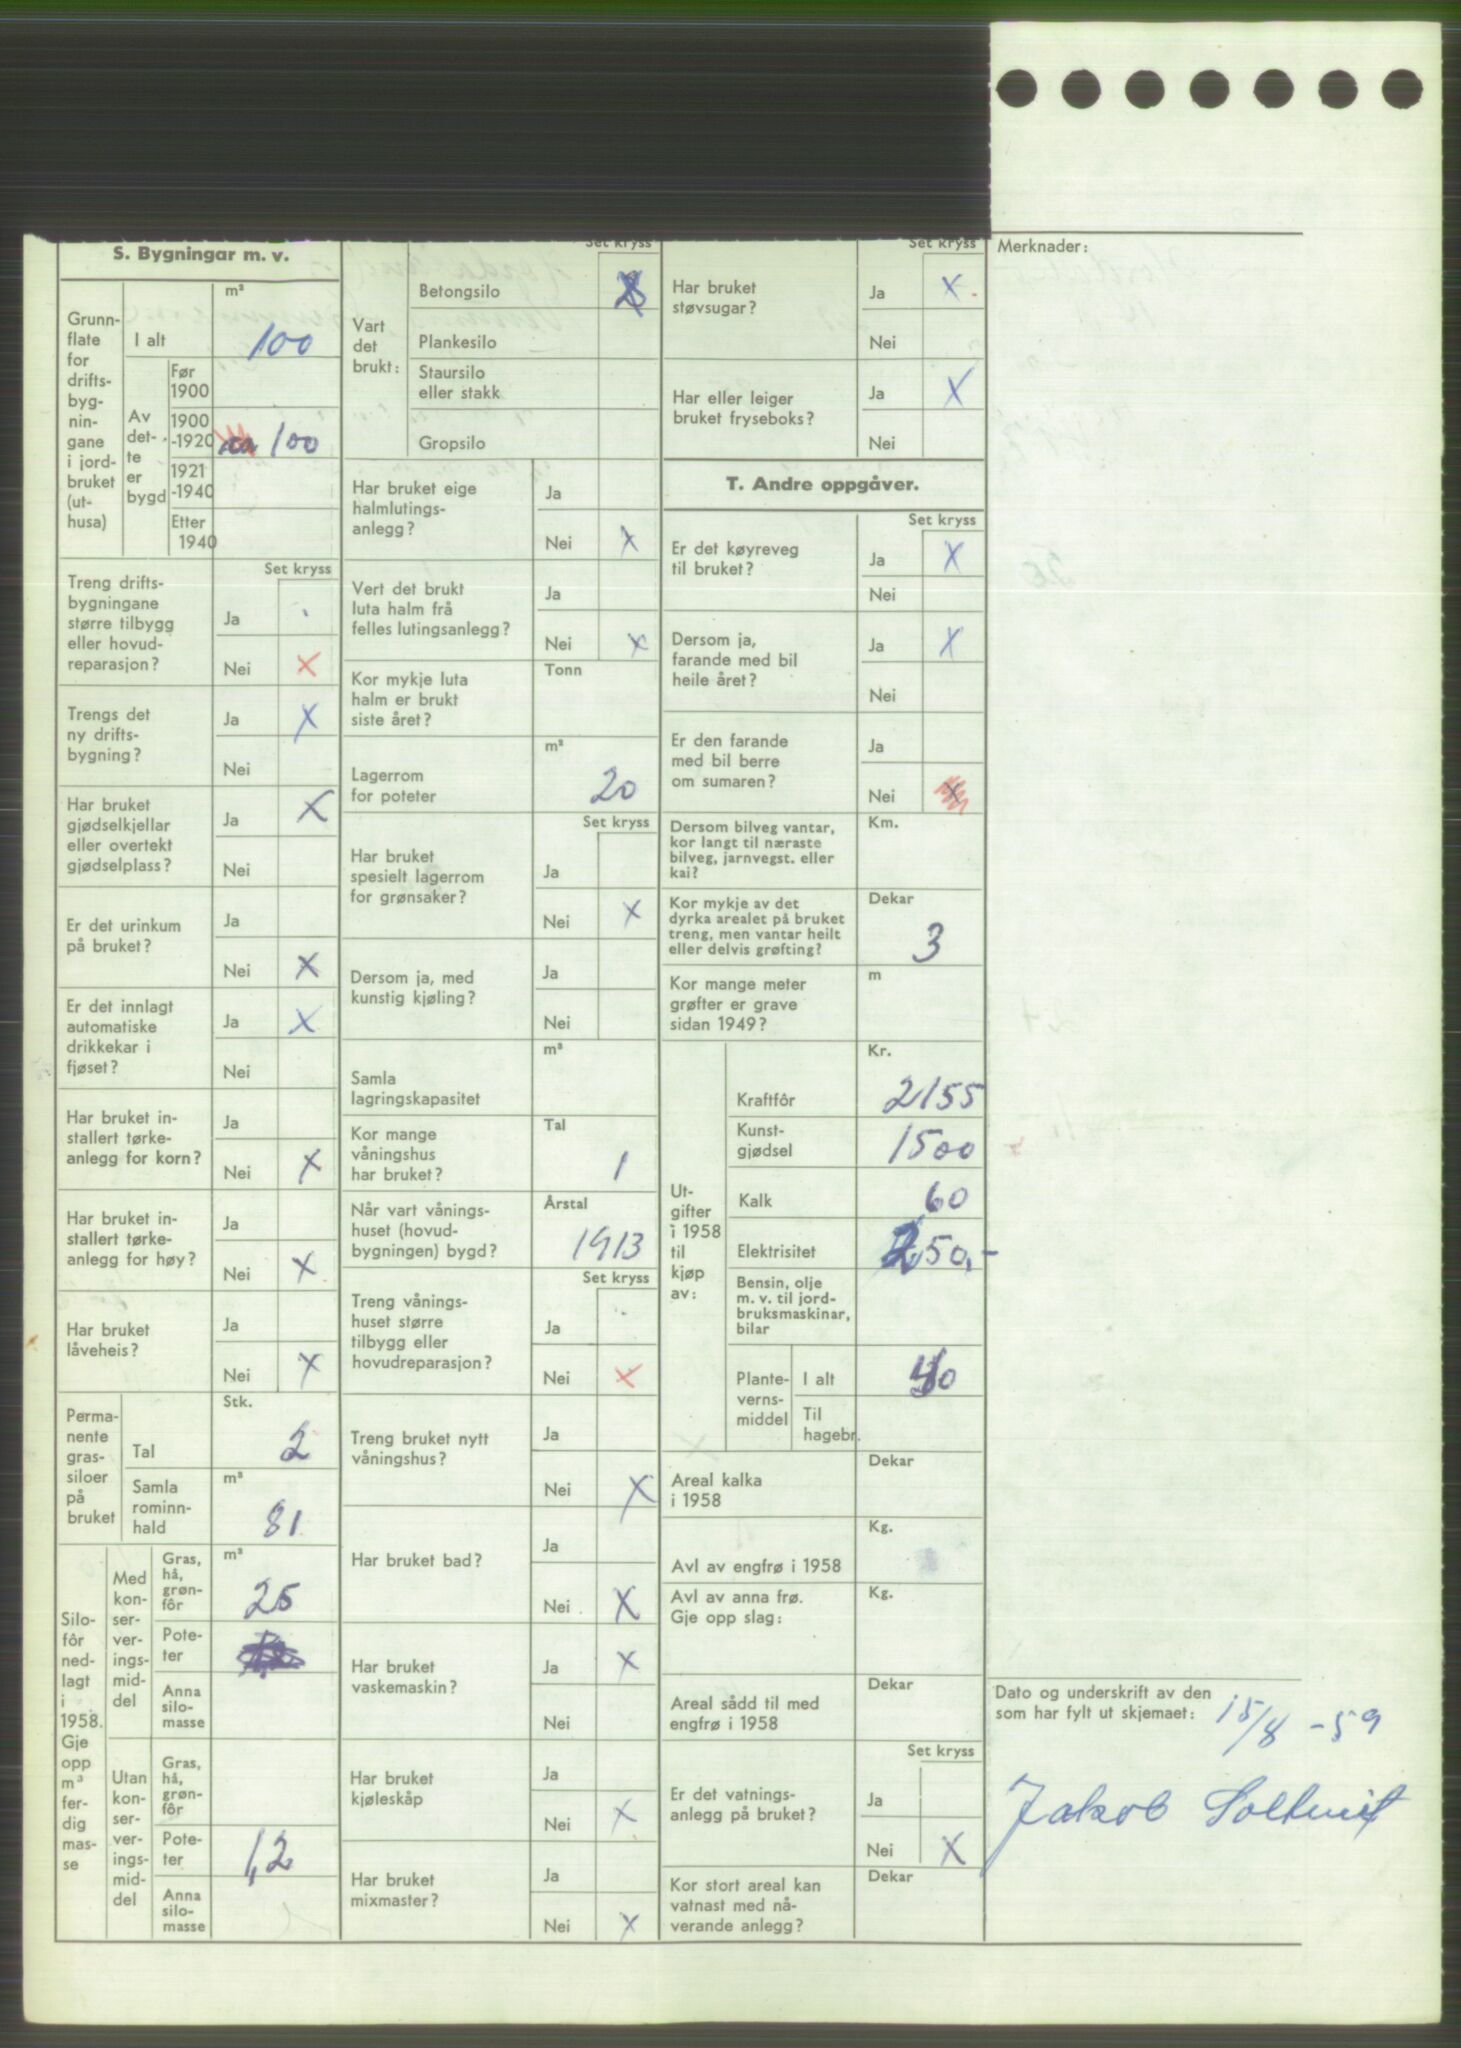 S. Bygningar m. v.
Grunn-
flate
for
drifts-
byg-
nin-
gane
i jord-
bruket
(ut-
husa)
m²
I alt 100
Av
det-
te
er
bygd
Før
1900
1900
-1920 ca 100
1921
-1940
Etter
1940
Set kryss
Treng drifts-
bygningane
større tilbygg
eller hovud-
reparasjon?
Ja
Nei X
Trengs det
ny drifts-
bygning?
Ja X
Nei
Har bruket
gjødselkjellar
eller overtekt
gjødselplass?
Ja X
Nei
Er det urinkum
på bruket?
Ja
Nei X
Er det innlagt
automatiske
drikkekar i
fjøset?
Ja X
Nei
Har bruket in-
stallert tørke-
anlegg for korn?
Ja
Nei X
Har bruket in-
stallert tørke-
anlegg for høy?
Ja
Nei X
Har bruket
låveheis?
Ja
Nei X
Perma-
nente
gras-
siloer
på
bruket
Stk.
Tal 2
Samla
rominn-
hald
m³
81
Silo-
fôr
ned-
lagt
i
1958.
Gje
opp
m³
fer-
dig
mas-
se
Med
kon-
ser-
ver-
ings-
mid-
del
Gras,
hå,
grøn-
fôr
m³
25
Pote-
ter
Anna
silo-
masse
Utan
kon-
ser-
ver-
ings-
mid-
del
Gras,
hå,
grøn-
fôr
Pote-
ter
1,2
Anna
silo-
masse
Set kryss
Vart
det
brukt:
Betongsilo X
Plankesilo
Staursilo
eller stakk
Gropsilo
Har bruket eige
halmlutings-
anlegg?
Ja
Nei X
Vert det brukt
luta halm frå
felles lutingsanlegg?
Ja
Nei X
Kor mykje luta
halm er brukt
siste året?
Tonn
Lagerrom
for poteter
m³
20
Set kryss
Har bruket
spesielt lagerrom
for grønsaker?
Ja
Nei X
Dersom ja, med
kunstig kjøling?
Ja
Nei
Samla
lagringskapasitet
m³
Kor mange
våningshus
har bruket?
Tal
1
Når vart vånings-
huset (hovud-
bygningen) bygd?
Årstal
1913
Set kryss
Treng vånings-
huset større
tilbygg eller
hovudreparasjon?
Ja
Nei X
Treng bruket nytt
våningshus?
Ja
Nei X
Har bruket bad?
Ja
Nei X
Har bruket
vaskemaskin?
Ja X
Nei
Har bruket
kjøleskåp
Ja
Nei X
Har bruket
mixmaster?
Ja
Nei X
Set kryss
Har bruket
støvsugar?
Ja X
Nei
Har eller leiger
bruket fryseboks?
Ja X
Nei
T. Andre oppgåver.
Set kryss
Er det køyreveg
til bruket?
Ja X
Nei
Dersom ja,
farande med bil
heile året?
Ja X
Nei
Er den farande
med bil berre
om sumaren?
Ja
Nei X
Dersom bilveg vantar,
kor langt til næraste
bilveg, jarnvegst. eller
kai?
Km.
Kor mykje av det
dyrka arealet på bruket
treng, men vantar heilt
eller delvis grøfting?
Dekar
3
Kor mange meter
grøfter er grave
sidan 1949?
m
Ut-
gifter
i 1958
til
kjøp
av:
Kr.
Kraftfôr 2155
Kunst-
gjødsel 1500
Kalk 60
Elektrisitet 250,-
Bensin, olje
m. v. til jord-
bruksmaskinar,
bilar
Plante-
verns-
middel
I alt
Til
hagebr.
Areal kalka
i 1958
Dekar
Avl av engfrø i 1958
Kg.
Avl av anna frø.
Gje opp slag:
Kg.
Areal sådd til med
engfrø i 1958
Dekar
Set kryss
Er det vatnings-
anlegg på bruket?
Ja
Nei X
Kor stort areal kan
vatnast med nå-
verande anlegg?
Dekar
Merknader:
Dato og underskrift av den
som har fylt ut skjemaet: 15/8 - 59
Jakob Soltveit